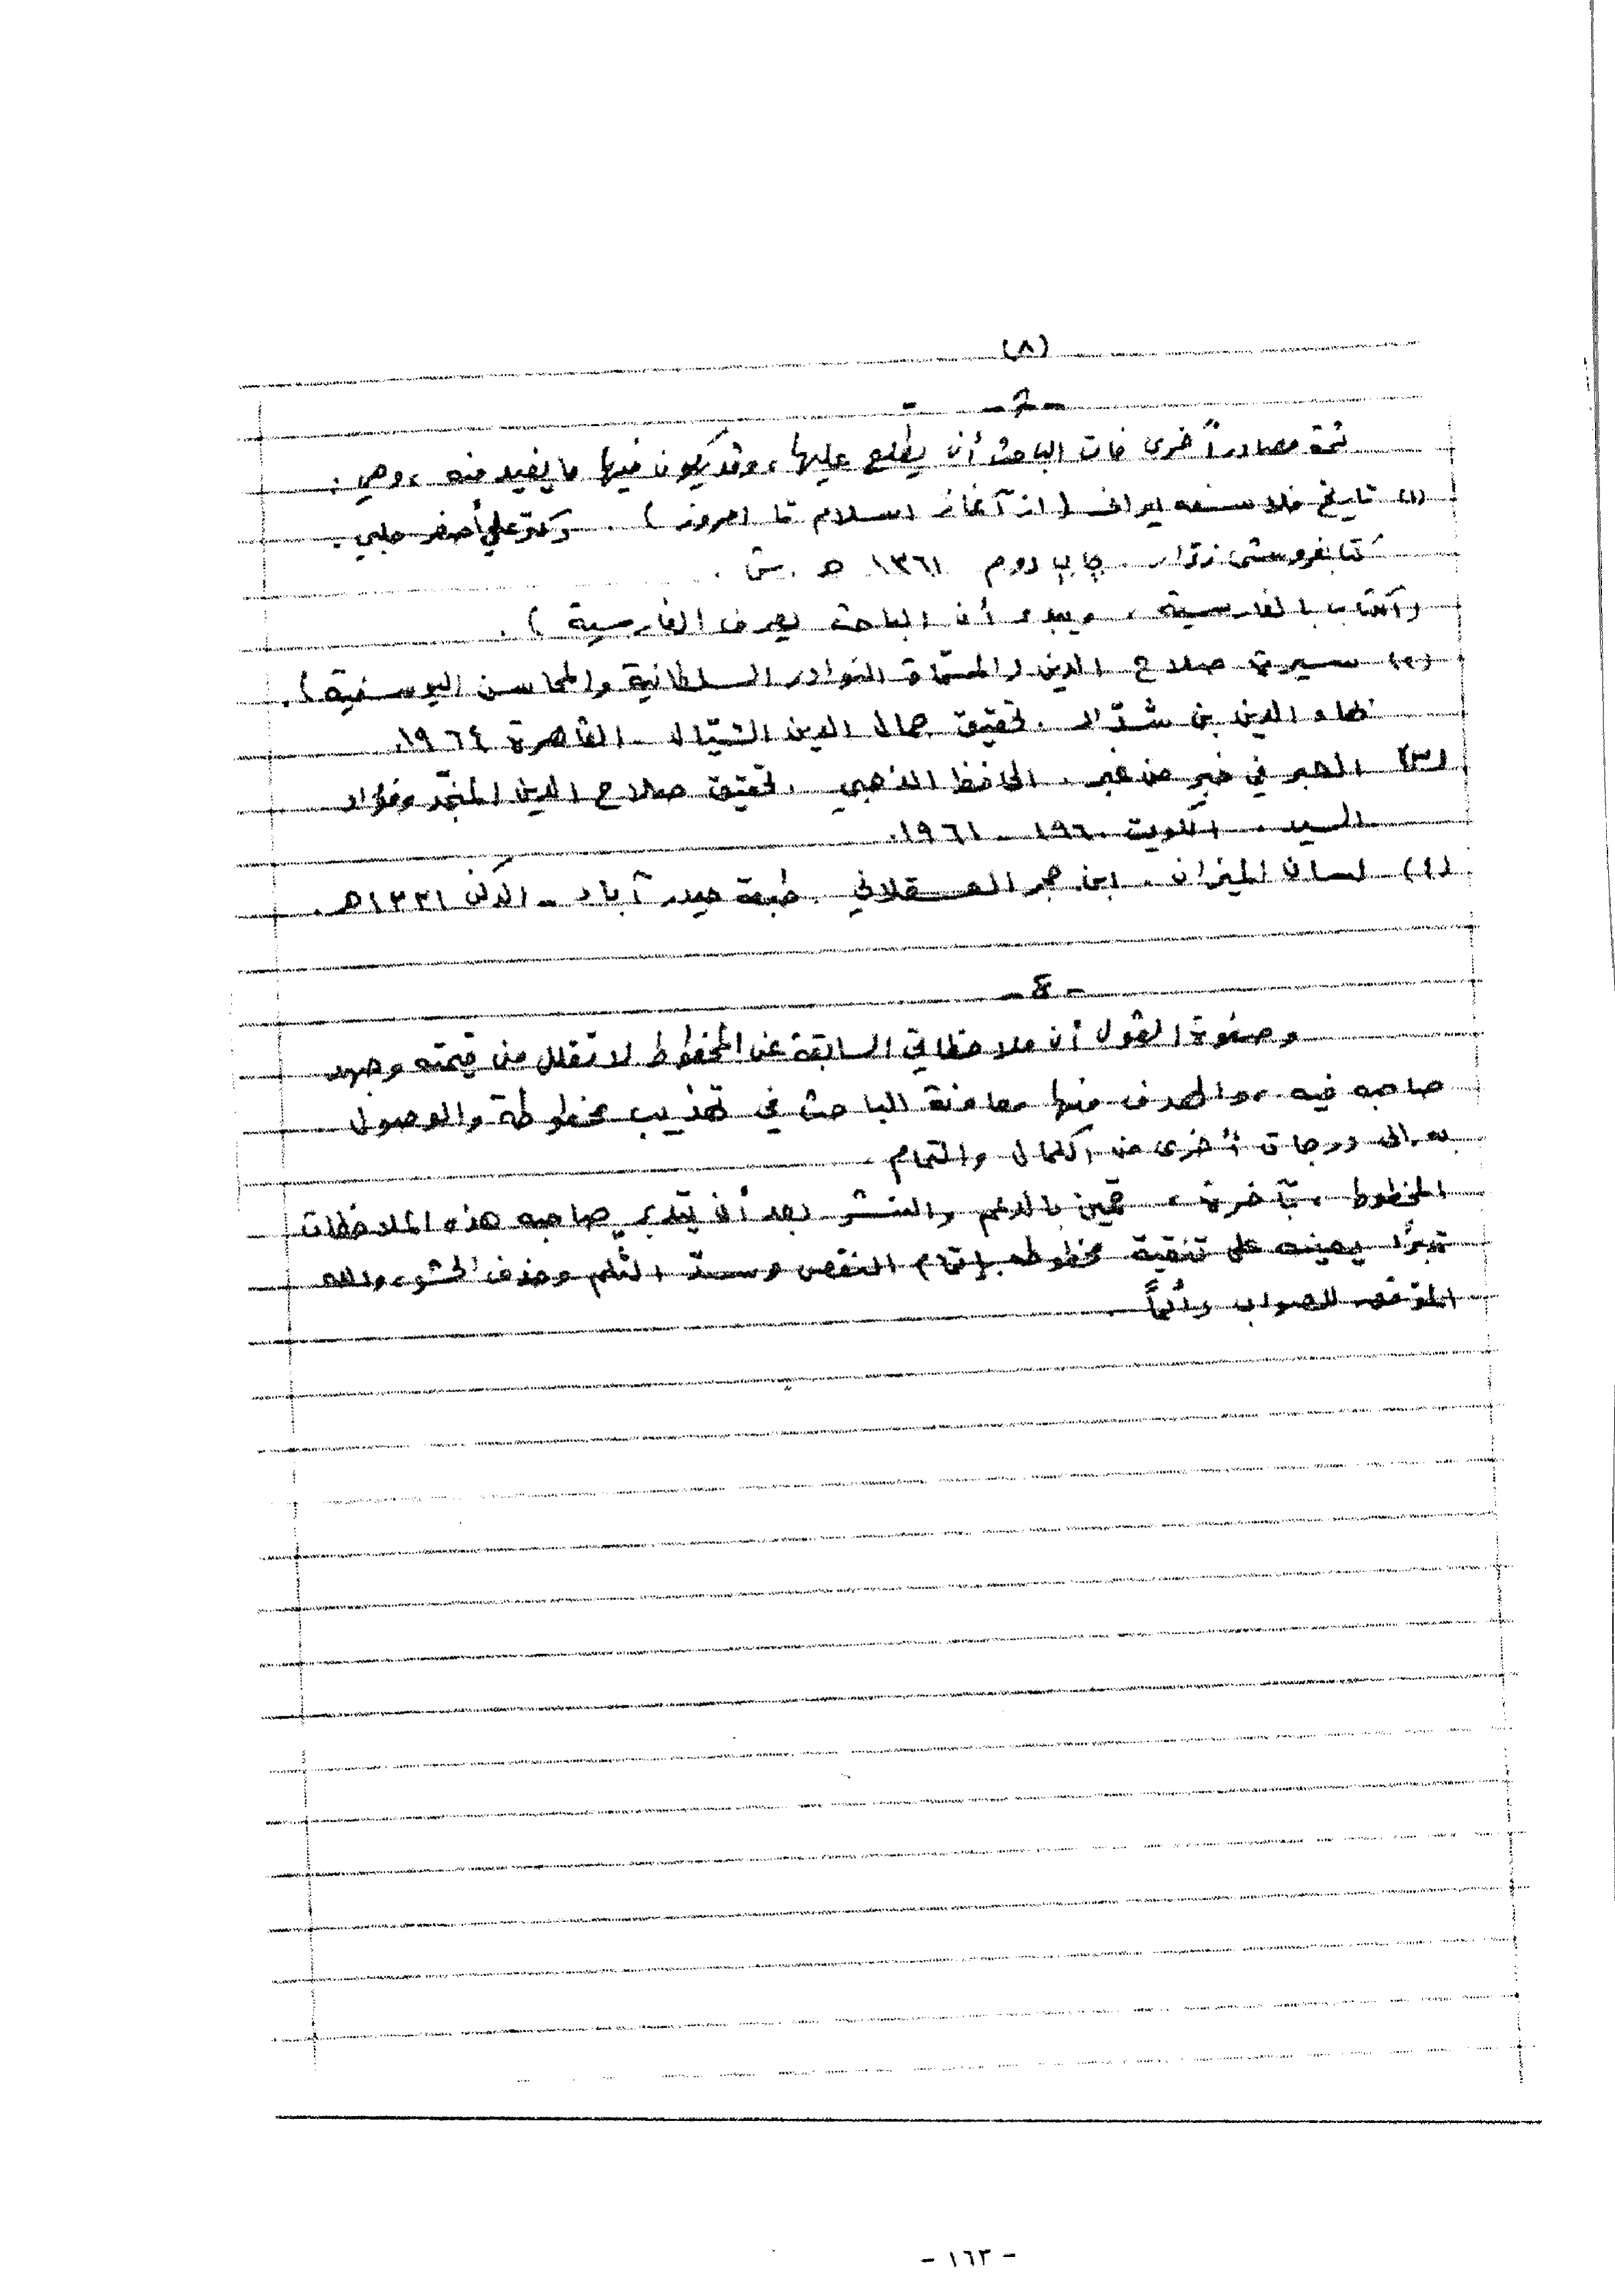 (٨)
ثمة مصادر أخرى فات الباحث أن يطلع عليها، وقد يكون فيها ما يفيد منه، وهي:
(١) تاريخ فلاسفه ايران (از آغاز اسلام تا امروز). دكتر علي أصغر حلبي.
كتابفروشى زوّار. چاپ دوم ١٣٦١ هـ.ش.
(الكتاب بالفارسية، ويبدو أن الباحث يعرف الفارسية).
(٢) سيرة صلاح الدين (المسمّاة النوادر السلطانية والمحاسن اليوسفية).
بهاء الدين بن شدّاد. تحقيق جمال الدين الشيّال - القاهرة ١٩٦٤.
(٣) العبر في خبر من غبر. الحافظ الذهبي. تحقيق صلاح الدين المنجّد وفؤاد
السيد. الكويت ١٩٦٠ - ١٩٦١.
(٤) لسان الميزان. ابن حجر العسقلاني. طبعة حيدر آباد - الدكن ١٣٣١هـ.
- ٤ -
وصفوة القول أن ملاحظاتي السابقة عن المخطوط لا تقلل من قيمته وجهد
صاحبه فيه، والهدف منها معاونة الباحث في تهذيب مخطوطة والوصول
به إلى درجات أخرى من الكمال والتمام.
المخطوط، بآخرة، قمين بالدعم والنشر بعد أن يتدبّر صاحبه هذه الملاحظات
تدبرًا يعينه على تنقية مخطوطه بإتمام النقص وسدّ الثلم وحذف الحشو، والله
الموّفق للصواب دائماً
- ١٦٣ -